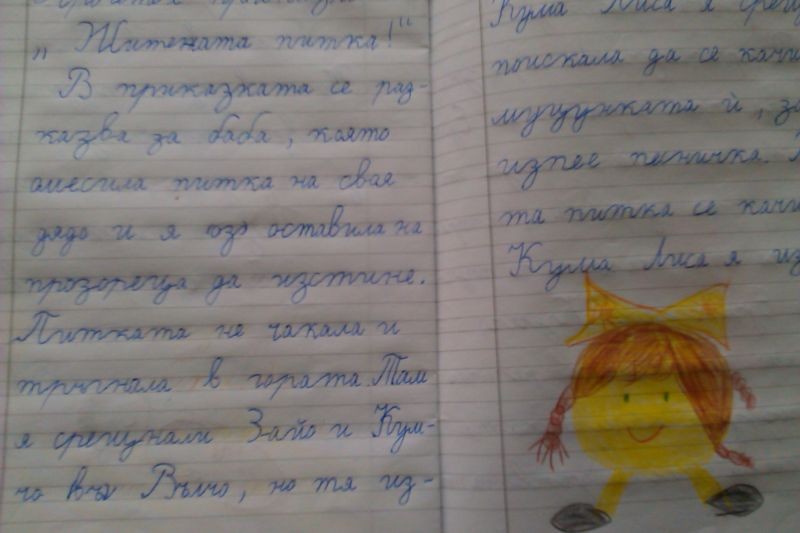 „Житената питка!“
В приказката се раз-
казва за баба, която
омесила питка на своя
дядо и я оставила на
прозореца да изстине.
Питката не чакала и
тръгнала в гората. Там
я срещнали Зайо и Кум-
чо Вълчо, но тя из-
Кума Лиса я срещ
поискала да се качи
муцунката ѝ, за
изпее песничка.
та питка се качи
Кума Лиса я из